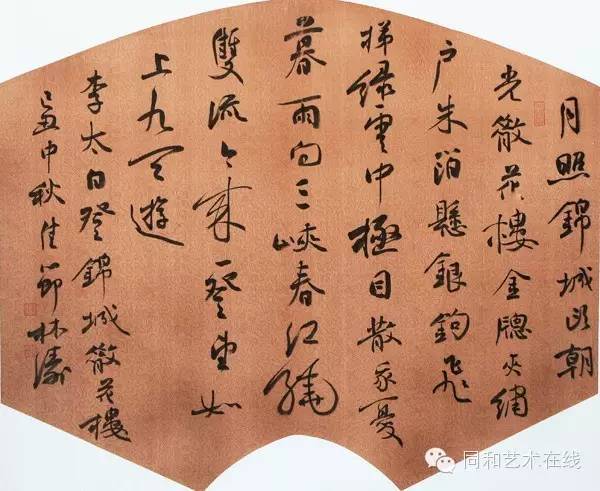 日照錦城头朝
光散花樓金牕夾繡
户朱箔懸銀鉤飛
梯绿雲中極目散我憂
暮雨向三峽春江繞
雙流今来一登望如
上九天遊
李太白登錦城散花樓
己丑中秋佳節林濤
同和艺术在线